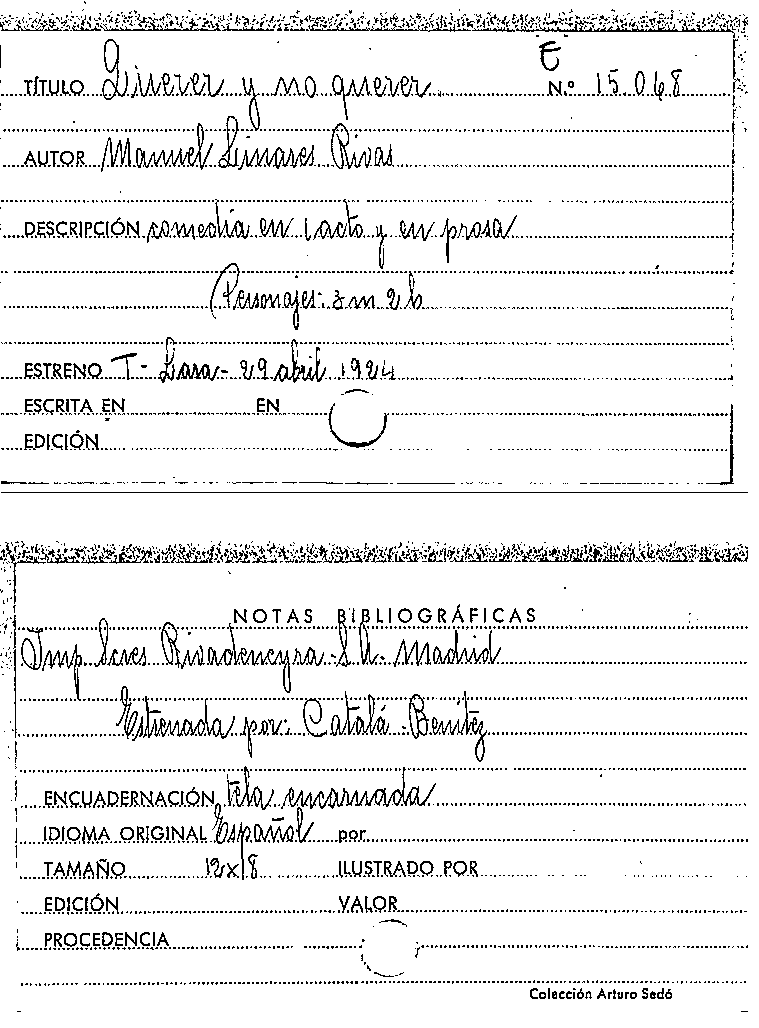 E
TÍTULO Querer y no querer. N.º 15.048
AUTOR Manuel Linares Rivas
DESCRIPCIÓN comedia en 1 acto y en prosa
Personajes: 3 m 2 h
ESTRENO T- Lara- 29 abril 1924
ESCRITA EN EN
EDICIÓN
NOTAS BIBLIOGRÁFICAS
Imp. Scres Rivadeneyra. S.A. Madrid
Estrenada por: Catalá - Benítez
ENCUADERNACIÓN tela encarnada
IDIOMA ORIGINAL Español por
TAMAÑO 12x18 ILUSTRADO POR
EDICIÓN VALOR
PROCEDENCIA
Colección Arturo Sedó